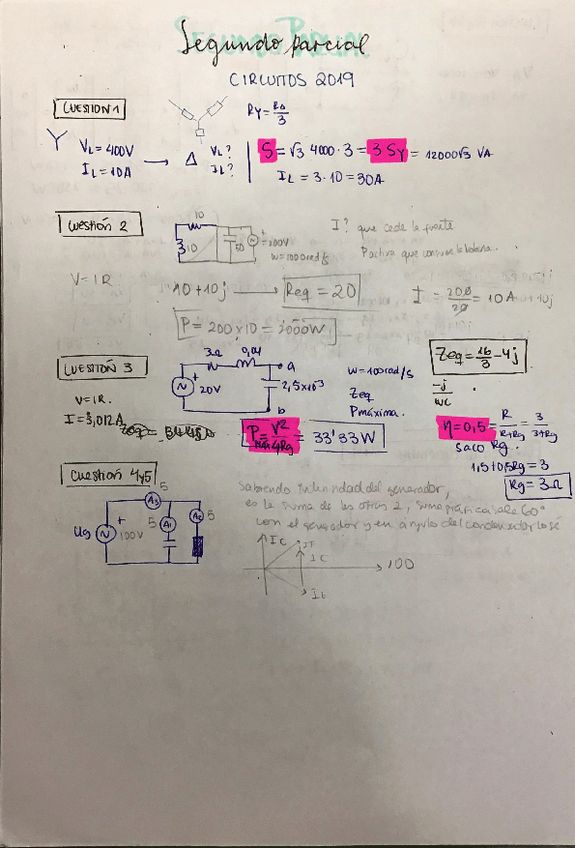 Segundo Parcial
CIRCUITOS 2019
CUESTION 1
RY = RΔ/3
Y VL = 400V → Δ VL?
IL = 10A IL?
S = √3 4000·3 = 3 SY = 12000√3 VA
IL = 3·10 = 30A
Cuestión 2
10
10
50
200V
w=1000rad/s
I? que cede la fuente
P activa que consume la bobina.
V = I R
10+10j → Req = 20
I = 200/20 = 10A
P = 200×10 = 2000W
CUESTIÓN 3
3Ω 0,04
20V
a
2,5×10³
b
W=100rad/s
Zeq
Pmáxima.
Zeq = 16/3 - 4j
-j/WC
V = I R.
I = 3,012A
P = V²/4Rg = 33'33W
η=0,5 = R/R+Rg = 3/3+Rg
saco Rg.
1,5+0,5Rg = 3
Rg = 3Ω
Cuestión 4y5
A3 5
5 A1
A2 5
Ug + 100V
Sabiendo intensidad del generador,
es la suma de las otras 2,
con el generador y en ángulo del condensador lo sé
Ic
IT
IC
100
IL